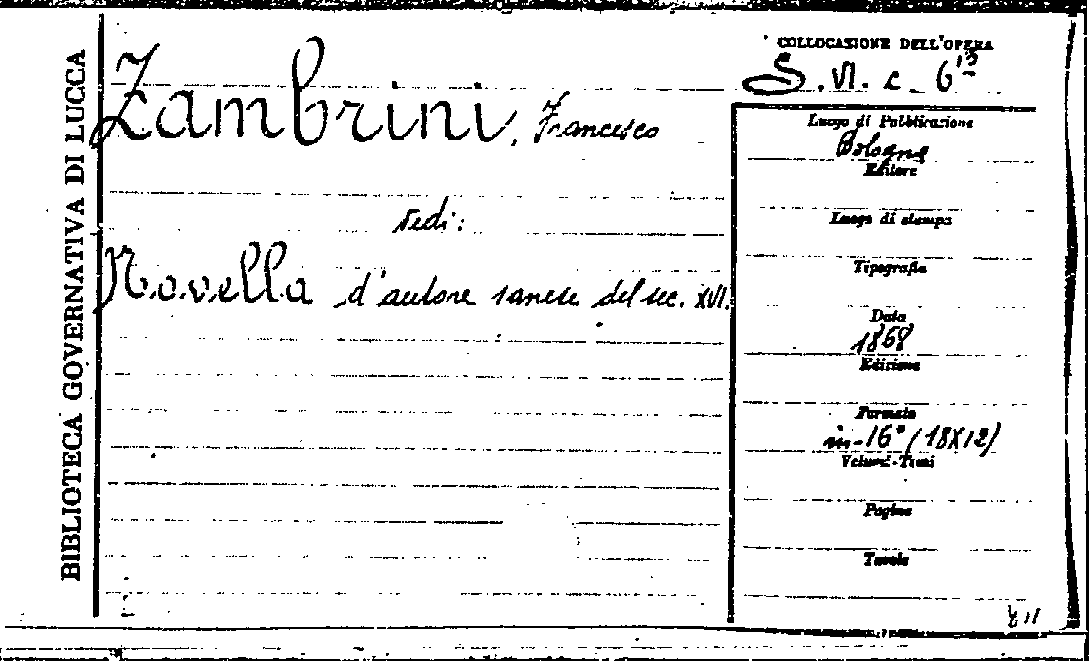 BIBLIOTECA GOVERNATIVA DI LUCCA
Zambrini, Francesco
vedi:
Novella d'autore sanese del sec. XVI.
COLLOCASIONE DELL'OPERA
S. VI. c. 6
Luogo di Pubblicazione
Bologna
Editore
Luogo di stampa
Tipografia
Data
1868
Edizione
Formato
in-16° (18X12)
Volumi-Tomi
Pagine
Tavole